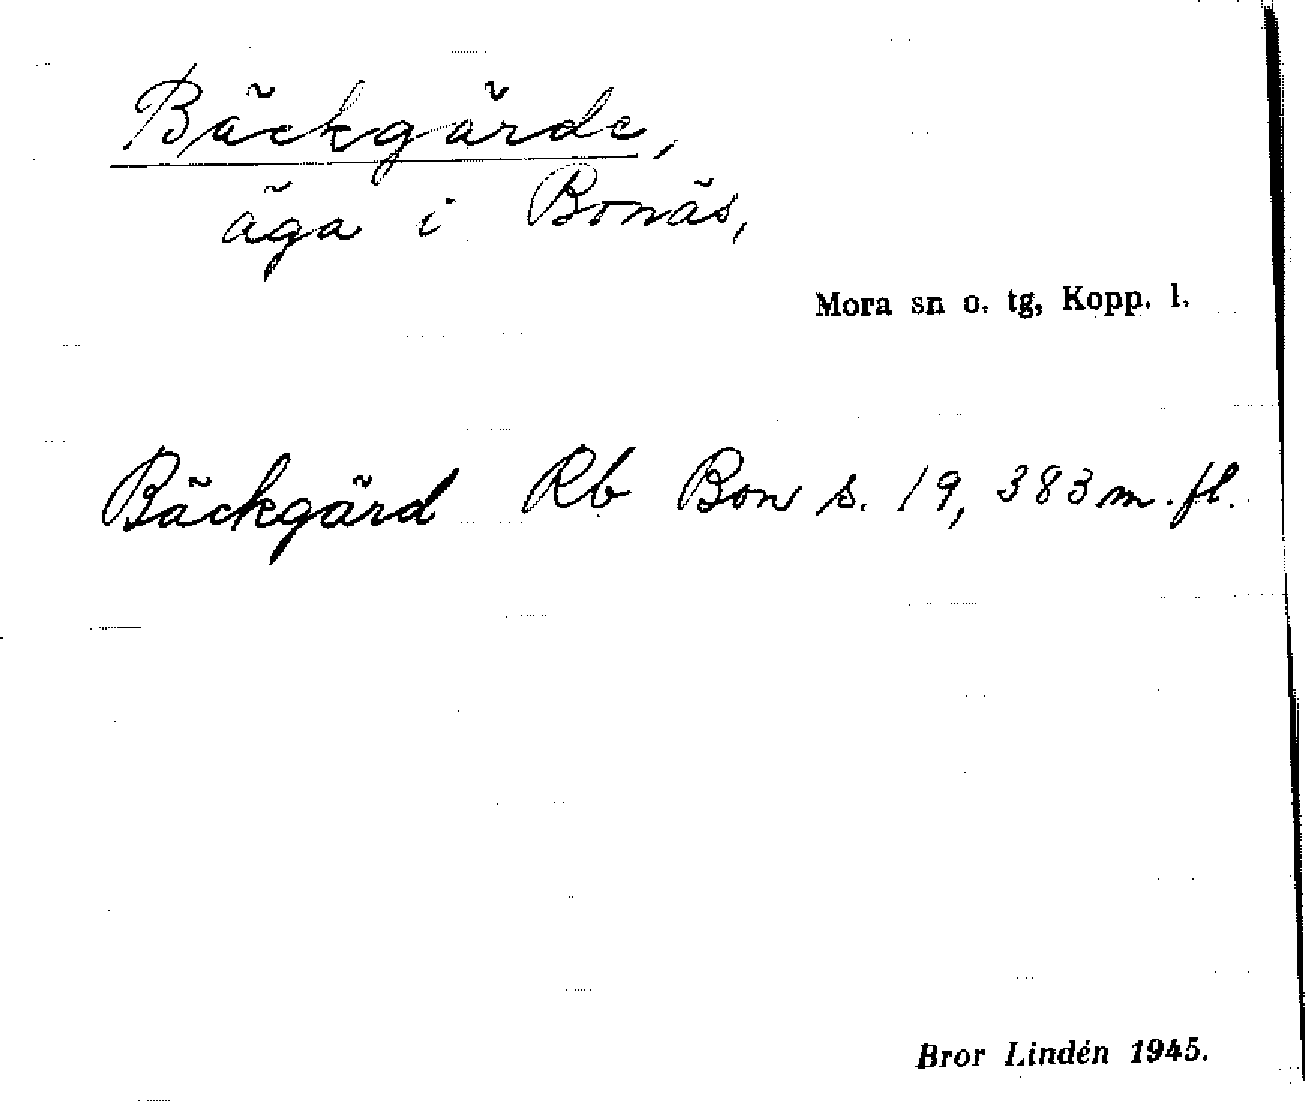 Bäckgärde,
äga i Bonäs,
Mora sn o. tg, Kopp. l.
Bäckgärd Rb Bon s. 19, 383 m. fl.
Bror Lindén 1945.